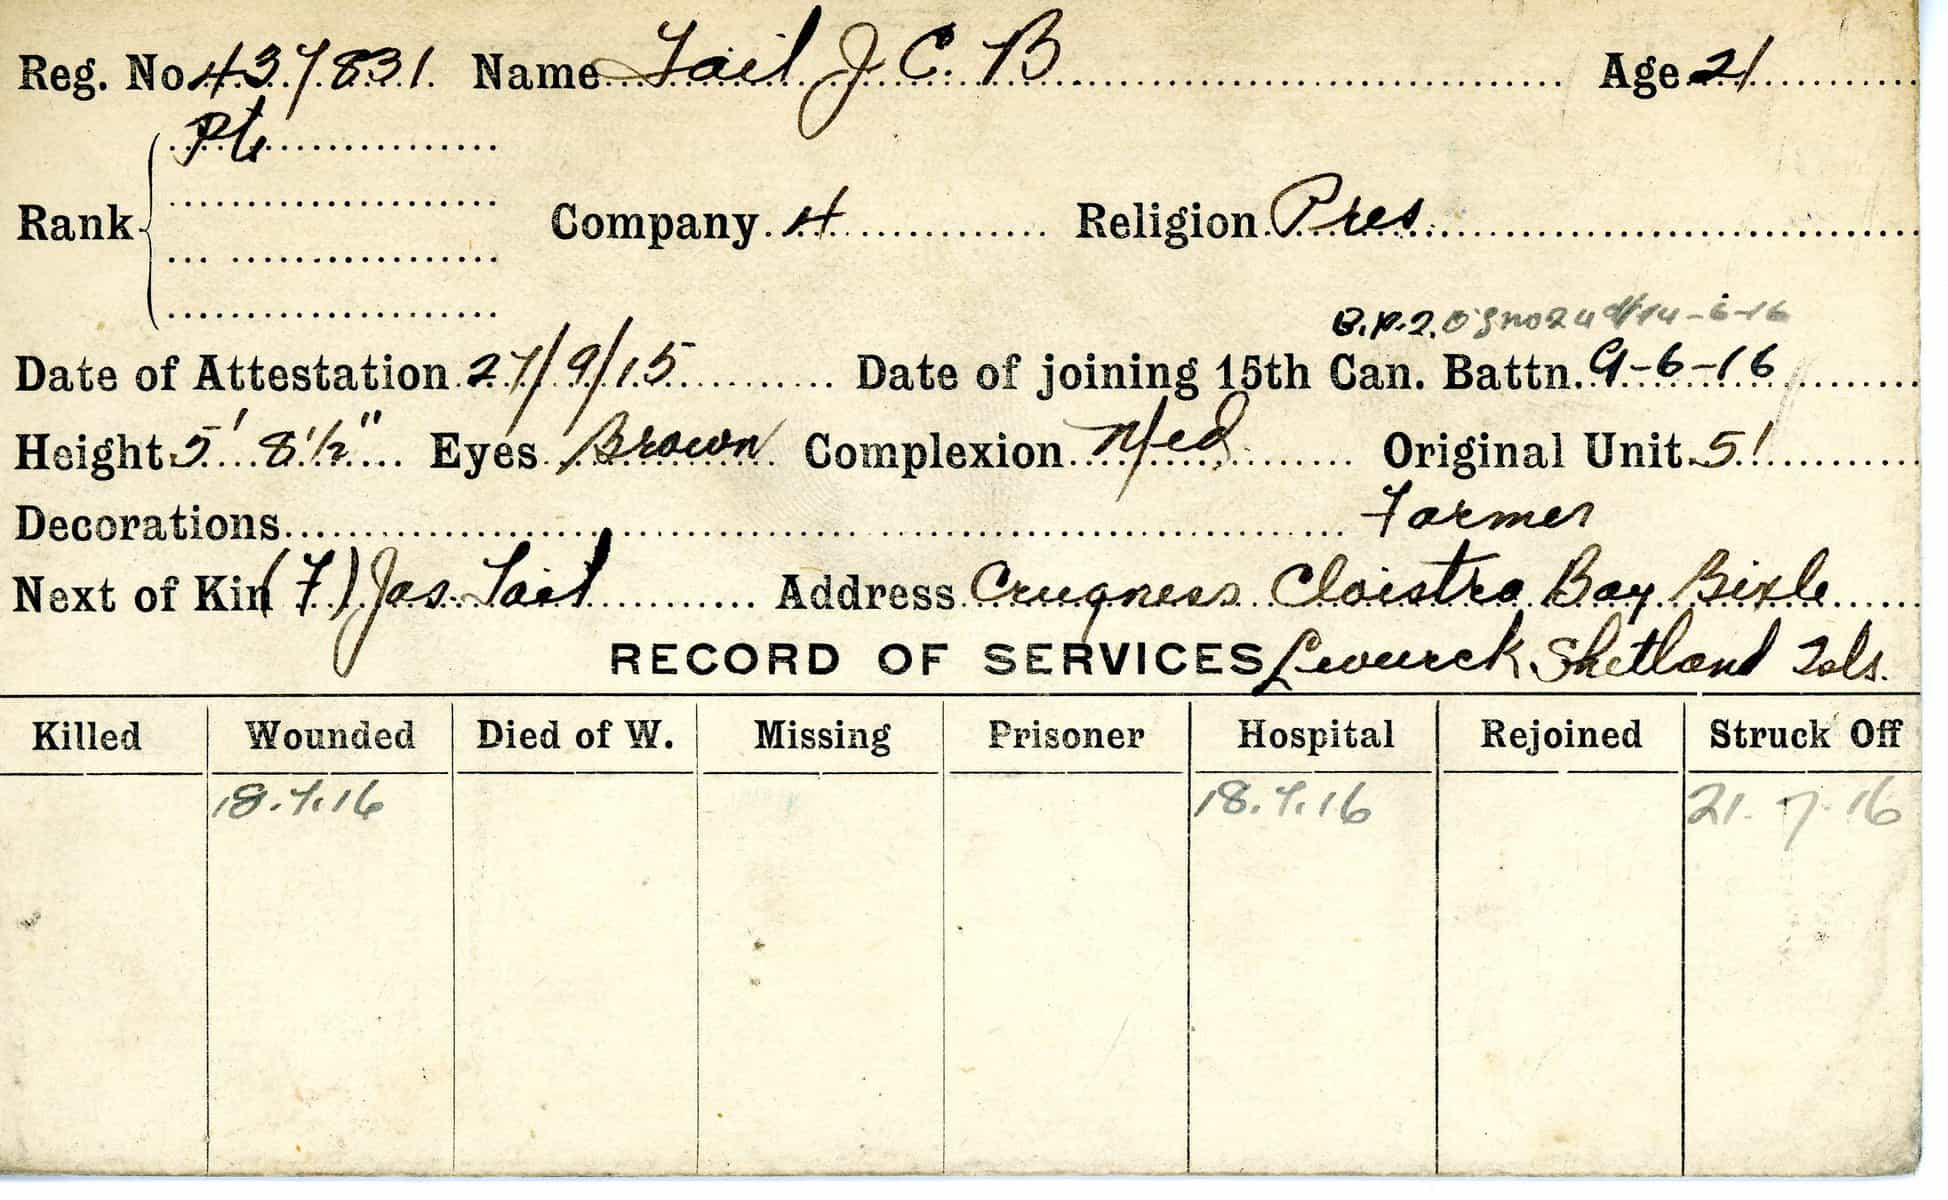 Reg. No 437831. Name Tait J. C. B Age 21
Pte
Rank Company 4 Religion Pres.
B.P.2. 14-6-16
Date of Attestation 27/9/15 Date of joining 15th Can. Battn. 9-6-16
Height 5' 8½" Eyes Brown Complexion Med. Original Unit 51
Decorations Farmer
Next of Kin (F) Jas. Tait Address Crugness Cloistra Bay Bixle
RECORD OF SERVICES Shetland Isls.
Killed Wounded Died of W. Missing Prisoner Hospital Rejoined Struck Off
18.7.16 18.7.16 21.7.16